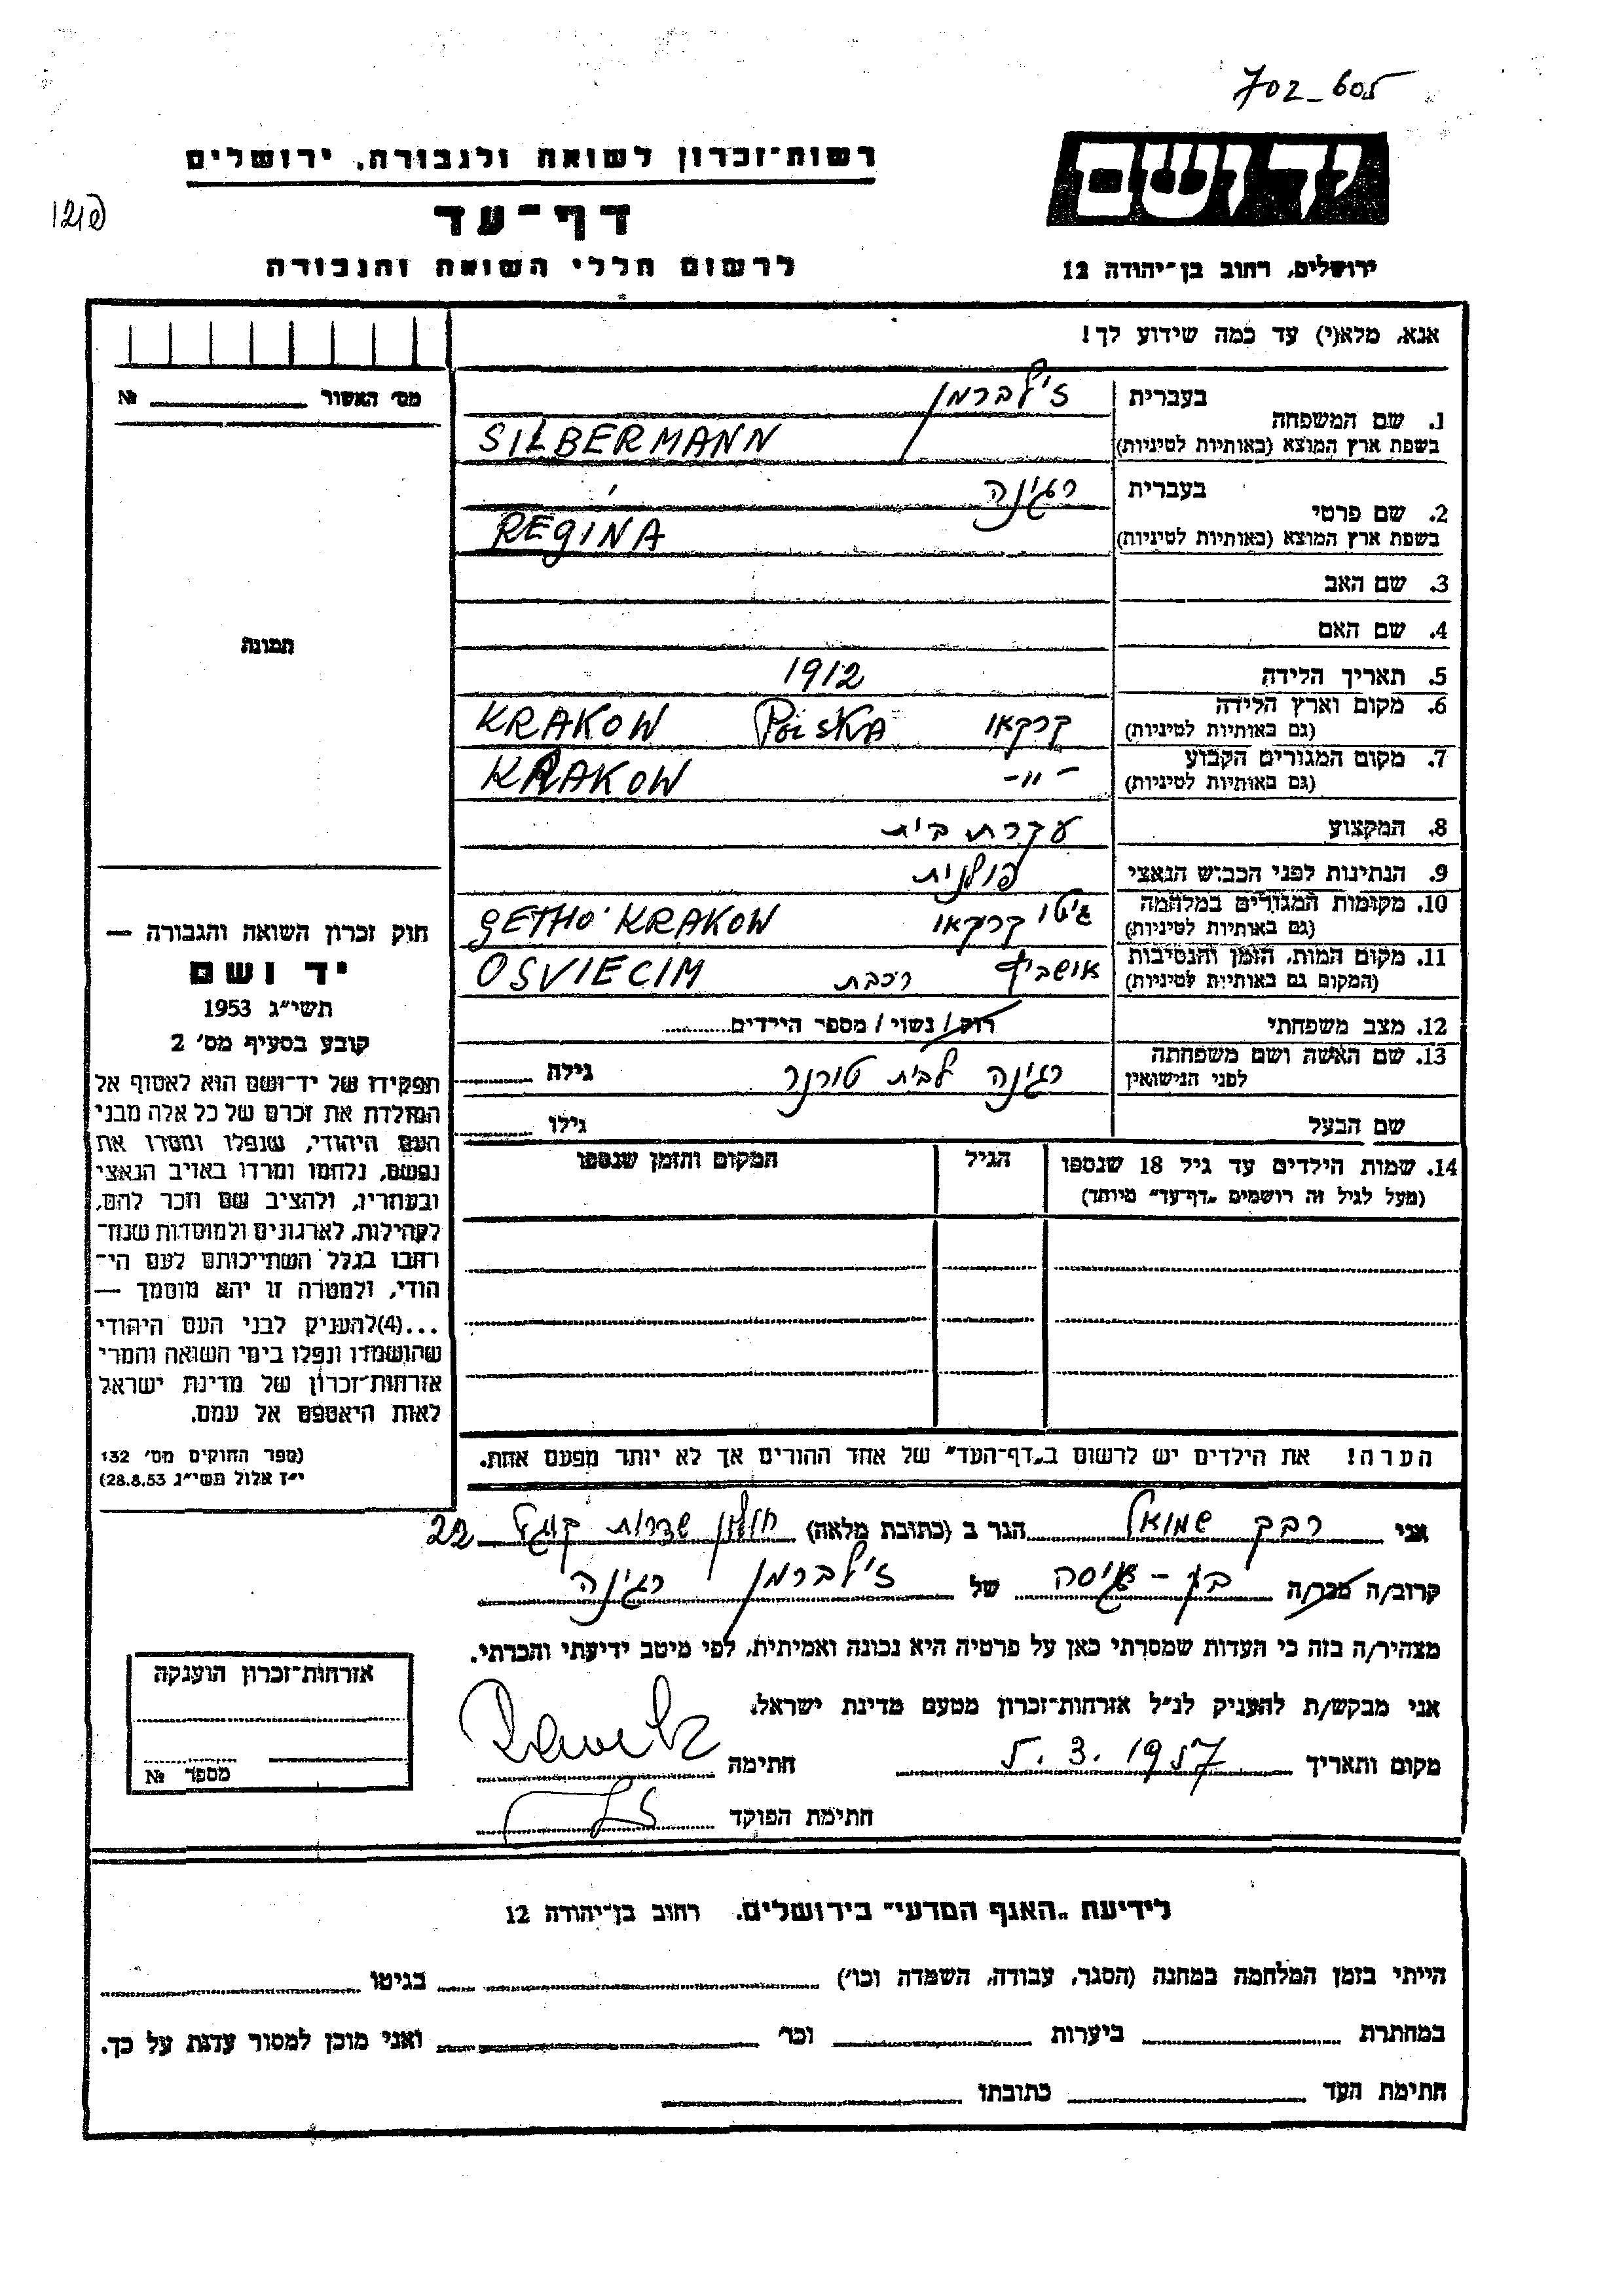 702-605
יד ושם
רשות־זכרון לשואה ולגבורה, ירושלים
דף־עד
לרשום חללי השואה והגבורה
ירושלים, רחוב בן־יהודה 12
אנא, מלא(י) עד כמה שידוע לך!
מס׳ האשור № 
1. שם המשפחה
בעברית זילברמן
בשפת ארץ המוצא (באותיות לטיניות) SILBERMANN
2. שם פרטי
בעברית רגינה
בשפת ארץ המוצא (באותיות לטיניות) REGINA
3. שם האב
4. שם האם
תמונה
5. תאריך הלידה 1912
6. מקום וארץ הלידה קרקאו Polska KRAKOW
(גם באותיות לטיניות)
7. מקום המגורים הקבוע -״- KRAKOW
(גם באותיות לטיניות)
8. המקצוע עקרת בית
9. הנתינות לפני הכבוש הנאצי פולנית
10. מקומות המגורים במלחמה גיטו קרקאו GETHO KRAKOW
(גם באותיות לטיניות)
11. מקום המות, הזמן והנסיבות אושביץ רכבת OSVIECIM
(המקום גם באותיות לטיניות)
12. מצב משפחתי רוק/ נשוי/ מספר הילדים
13. שם האשה ושם משפחתה רגינה לבית טורנר גילה
לפני הנישואין
שם הבעל גילו
14. שמות הילדים עד גיל 18 שנספו הגיל המקום והזמן שנספו
(מעל לגיל זה רושמים „דף־עד״ מיוחד)
חוק זכרון השואה והגבורה —
יד ושם
תשי״ג 1953
קובע בסעיף מס׳ 2
תפקידו של יד־ושם הוא לאסוף אל
המולדת את זכרם של כל אלה מבני
העם היהודי, שנפלו ומסרו את
נפשם, נלחמו ומרדו באויב הנאצי
ובעוזריו, ולהציב שם וזכר להם,
לקהילות, לארגונים ולמוסדות שנח־
רבו בגלל השתייכותם לעם הי־
הודי, ולמטרה זו יהא מוסמך —
...(4)להעניק לבני העם היהודי
שהושמדו ונפלו בימי השואה והמרי
אזרחות־זכרון של מדינת ישראל
לאות היאספם אל עמם.
(ספר החוקים מס׳ 132
י״ז אלול תשי״ג 28.8.53)
הערה! את הילדים יש לרשום ב„דף־העד״ של אחד ההורים אך לא יותר מפעם אחת.
אני רבק שמואל הגר ב (כתובת מלאה) חולון שדרות קוגל 22
קרוב/ה מכר/ה בן-גיסה של זילברמן רגינה
מצהיר/ה בזה כי העדות שמסרתי כאן על פרטיה היא נכונה ואמיתית, לפי מיטב ידיעתי והכרתי.
אני מבקש/ת להעניק לנ״ל אזרחות־זכרון מטעם מדינת ישראל.
מקום ותאריך 5.3.1957 חתימה
חתימת הפוקד
אזרחות־זכרון הוענקה
מספר №
לידיעת „האגף המדעי״ בירושלים. רחוב בן־יהודה 12
הייתי בזמן המלחמה במחנה (הסגר, עבודה, השמדה וכו׳) בגיטו
במחתרת ביערות וכו׳ ואני מוכן למסור עדות על כך.
חתימת העד כתובתו